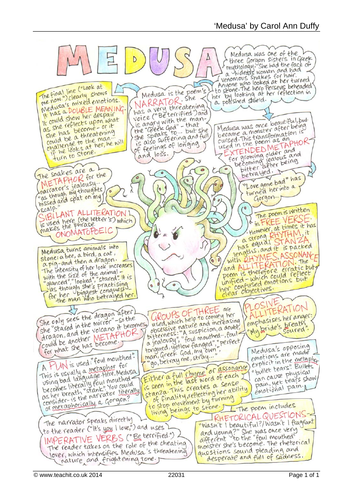 'Medusa' by Carol Ann Duffy
MEDUSA
The final line ("Look at
me now") clearly shows
Medusa's mixed emotions.
It has a DOUBLE MEANING-
it could show her despair
as she reflects upon what
she has become - or it
could be a threatening
challenge to the man -
if he looks at her, he will
turn to stone.
Medusa is the poem's
NARRATOR. She
has a very threatening
voice ("Be terrified") and
is angry with the man
(the "Greek God") that
she speaks to... but she
is also suffering and full
of feelings of longing
and loss.
Medusa was one of the
three Gorgon sisters in Greek
mythology. She had the face of
a hideous woman and had
venomous snakes for hair.
Anyone who looked at her turned
to stone. The hero Perseus beheaded
her by looking at her reflection in
a polished shield.
Medusa was once beautiful, but
became a monster after being
cursed. This transformation is
used in the poem as an
EXTENDED METAPHOR
for growing older and
becoming jealous and
bitter after being
betrayed.
"Love gone bad" has
turned her into a
Gorgon...
The snakes are a
METAPHOR for the
narrator's jealousy -
"as though my thoughts
hissed and spat on my
scalp."
SIBILANT ALLITERATION
is used here (the letter 's') which
makes the phrase
ONOMATOPOEIC.
The poem is written
in FREE VERSE.
However, at times it has
a strong RHYTHM,
has equal STANZA
lengths, and it is packed
with RHYME, ASSONANCE
and ALLITERATION. The
poem is therefore erratic but
unified - which could reflect
her confused emotions but
clear objectives.
Medusa turns animals into
stone: a bee, a bird, a cat,
a pig - and then a dragon.
The intensity of her look increases
with the size of the animal -
"glanced", "looked", "stared". It is
as though she's practising
for her biggest conquest -
the man who betrayed her.
She only sees the dragon after
she "stared in the mirror" - so the
dragon, and the volcano it becomes,
could be another METAPHOR
for what she has become.
GROUPS OF THREE are
used, which help to convey her
obsessive nature and increasing
bitterness: "A suspicion, a doubt,
a jealousy", "foul mouthed now, foul
tongued, yellow fanged", "perfect
man, Greek God, my own",
"go, betray me, stray"...
PLOSIVE
ALLITERATION
conveys her anger
"my bride's breath
soured".
A PUN is used: "foul mouthed".
This is usually a metaphor for
using bad language. Here, Medusa
becomes literally foul mouthed
as her breath "stank". You could
consider: is the narrator literally
or metaphorically a Gorgon?
Either a full rhyme or assonance
is seen in the last words of each
stanza. It creates a sense
of finality, reflecting her ability
to stop movement by turning
living beings to stone.
Medusa's opposing
emotions are made
explicit in the metaphor,
"bullet tears". Bullets
can cause physical
pain, yet tears show
emotional pain.
The narrator speaks directly
to the reader ("It's you I love") and uses
IMPERATIVE VERBS ("Be terrified").
The reader takes on the role of the cheating
lover, which intensifies Medusa's threatening
nature, and frightening tone.
The poem includes
RHETORICAL QUESTIONS -
"Wasn't I beautiful? / Wasn't I fragrant
and young?" She was once very
different to the "foul mouthed"
monster she's become. The rhetorical
questions sound pleading and
desperate and full of sadness.
© www.teachit.co.uk 2014
22031
Page 1 of 1